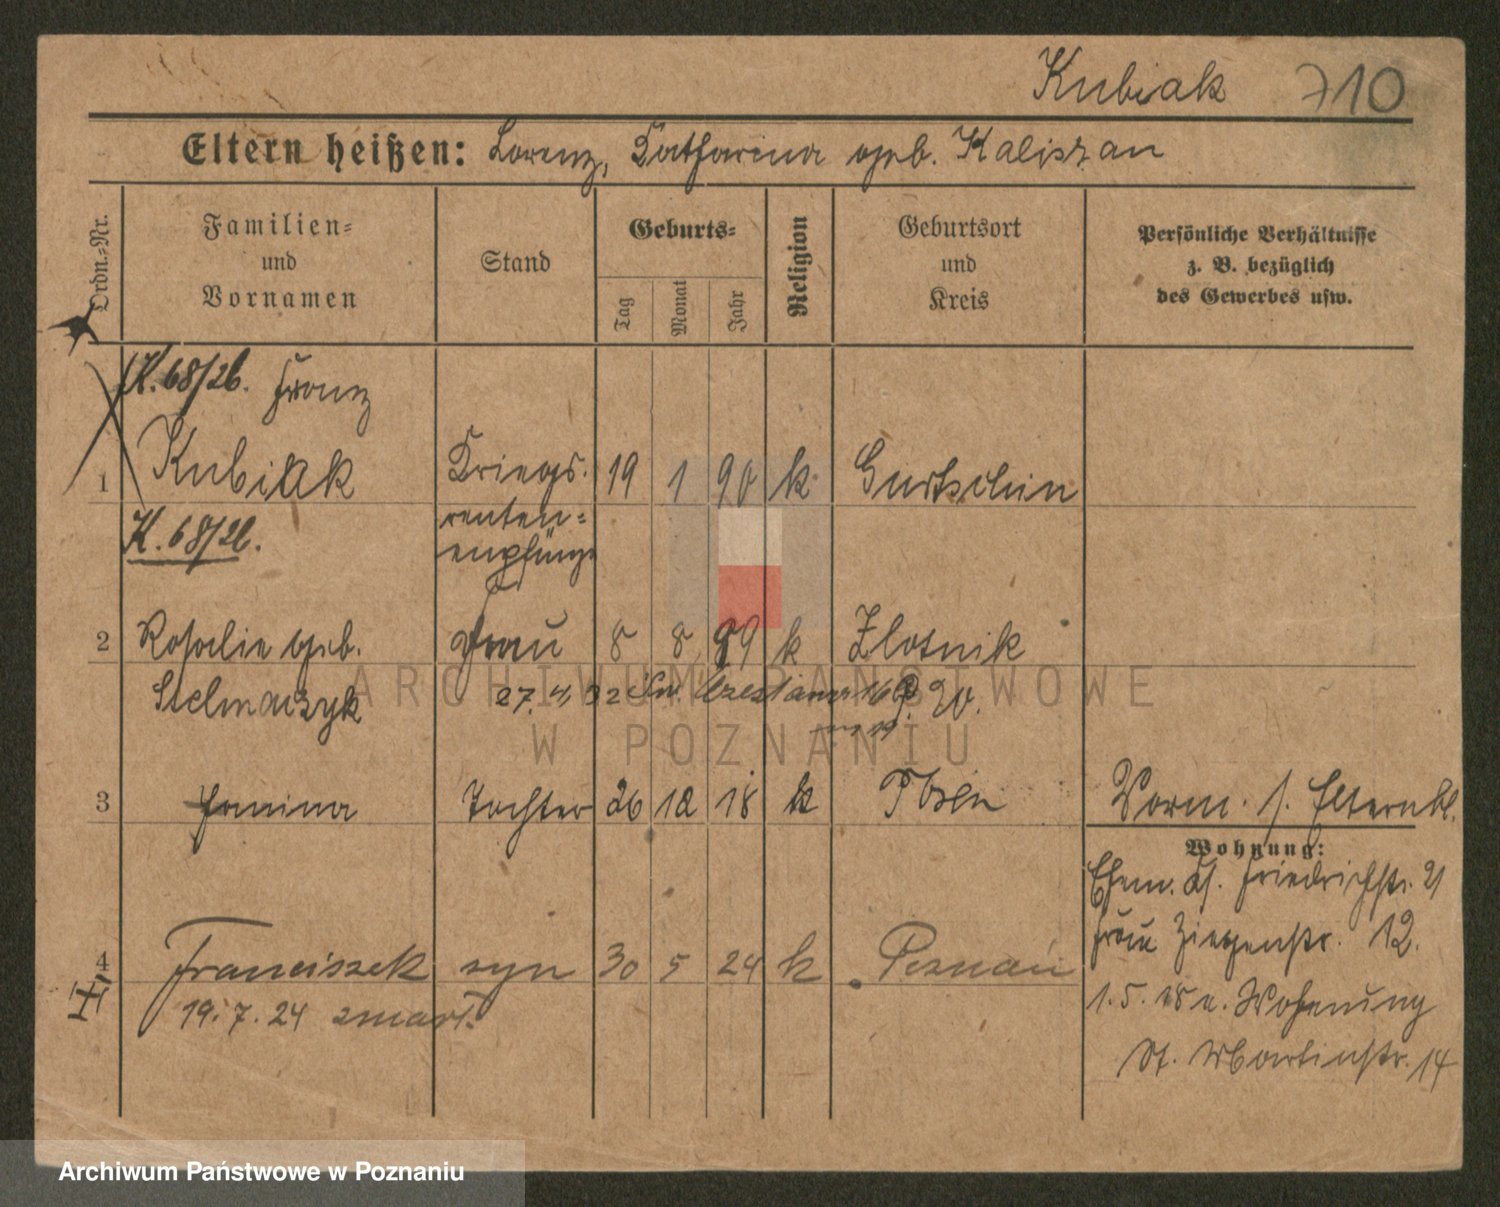 Kubiak 710
Eltern heißen: Lorenz, Katharina geb. Kaliszan
Ordn.-Nr.
Familien-
und
Vornamen
Stand
Geburts-
Tag
Monat
Jahr
Religion
Geburtsort
und
Kreis
Persönliche Verhältnisse
z. B. bezüglich
des Gewerbes usw.
K. 68/26. Franz
1 Kubiak Kriegs- 19 1 90 k. Gurtschin
K. 68/26. renten-
empfänger
2 Rosalie geb. Frau 8 8 89 k Zlotnik
Stelmaszyk 27.4.32
3 Janina Tochter 26 12 18 k Posen Vorm. s. Elternbl.
Wohnung:
Ehem. Kl. Friedrichstr. 21
Frau Ziegenstr. 12.
4 Franciszek syn 30 5 24 k Poznań
19.7.24 zmarł.
1.5.18 n. Wohnung
St. Martinstr. 14
ARCHIWUM PAŃSTWOWE
W POZNANIU
Archiwum Państwowe w Poznaniu